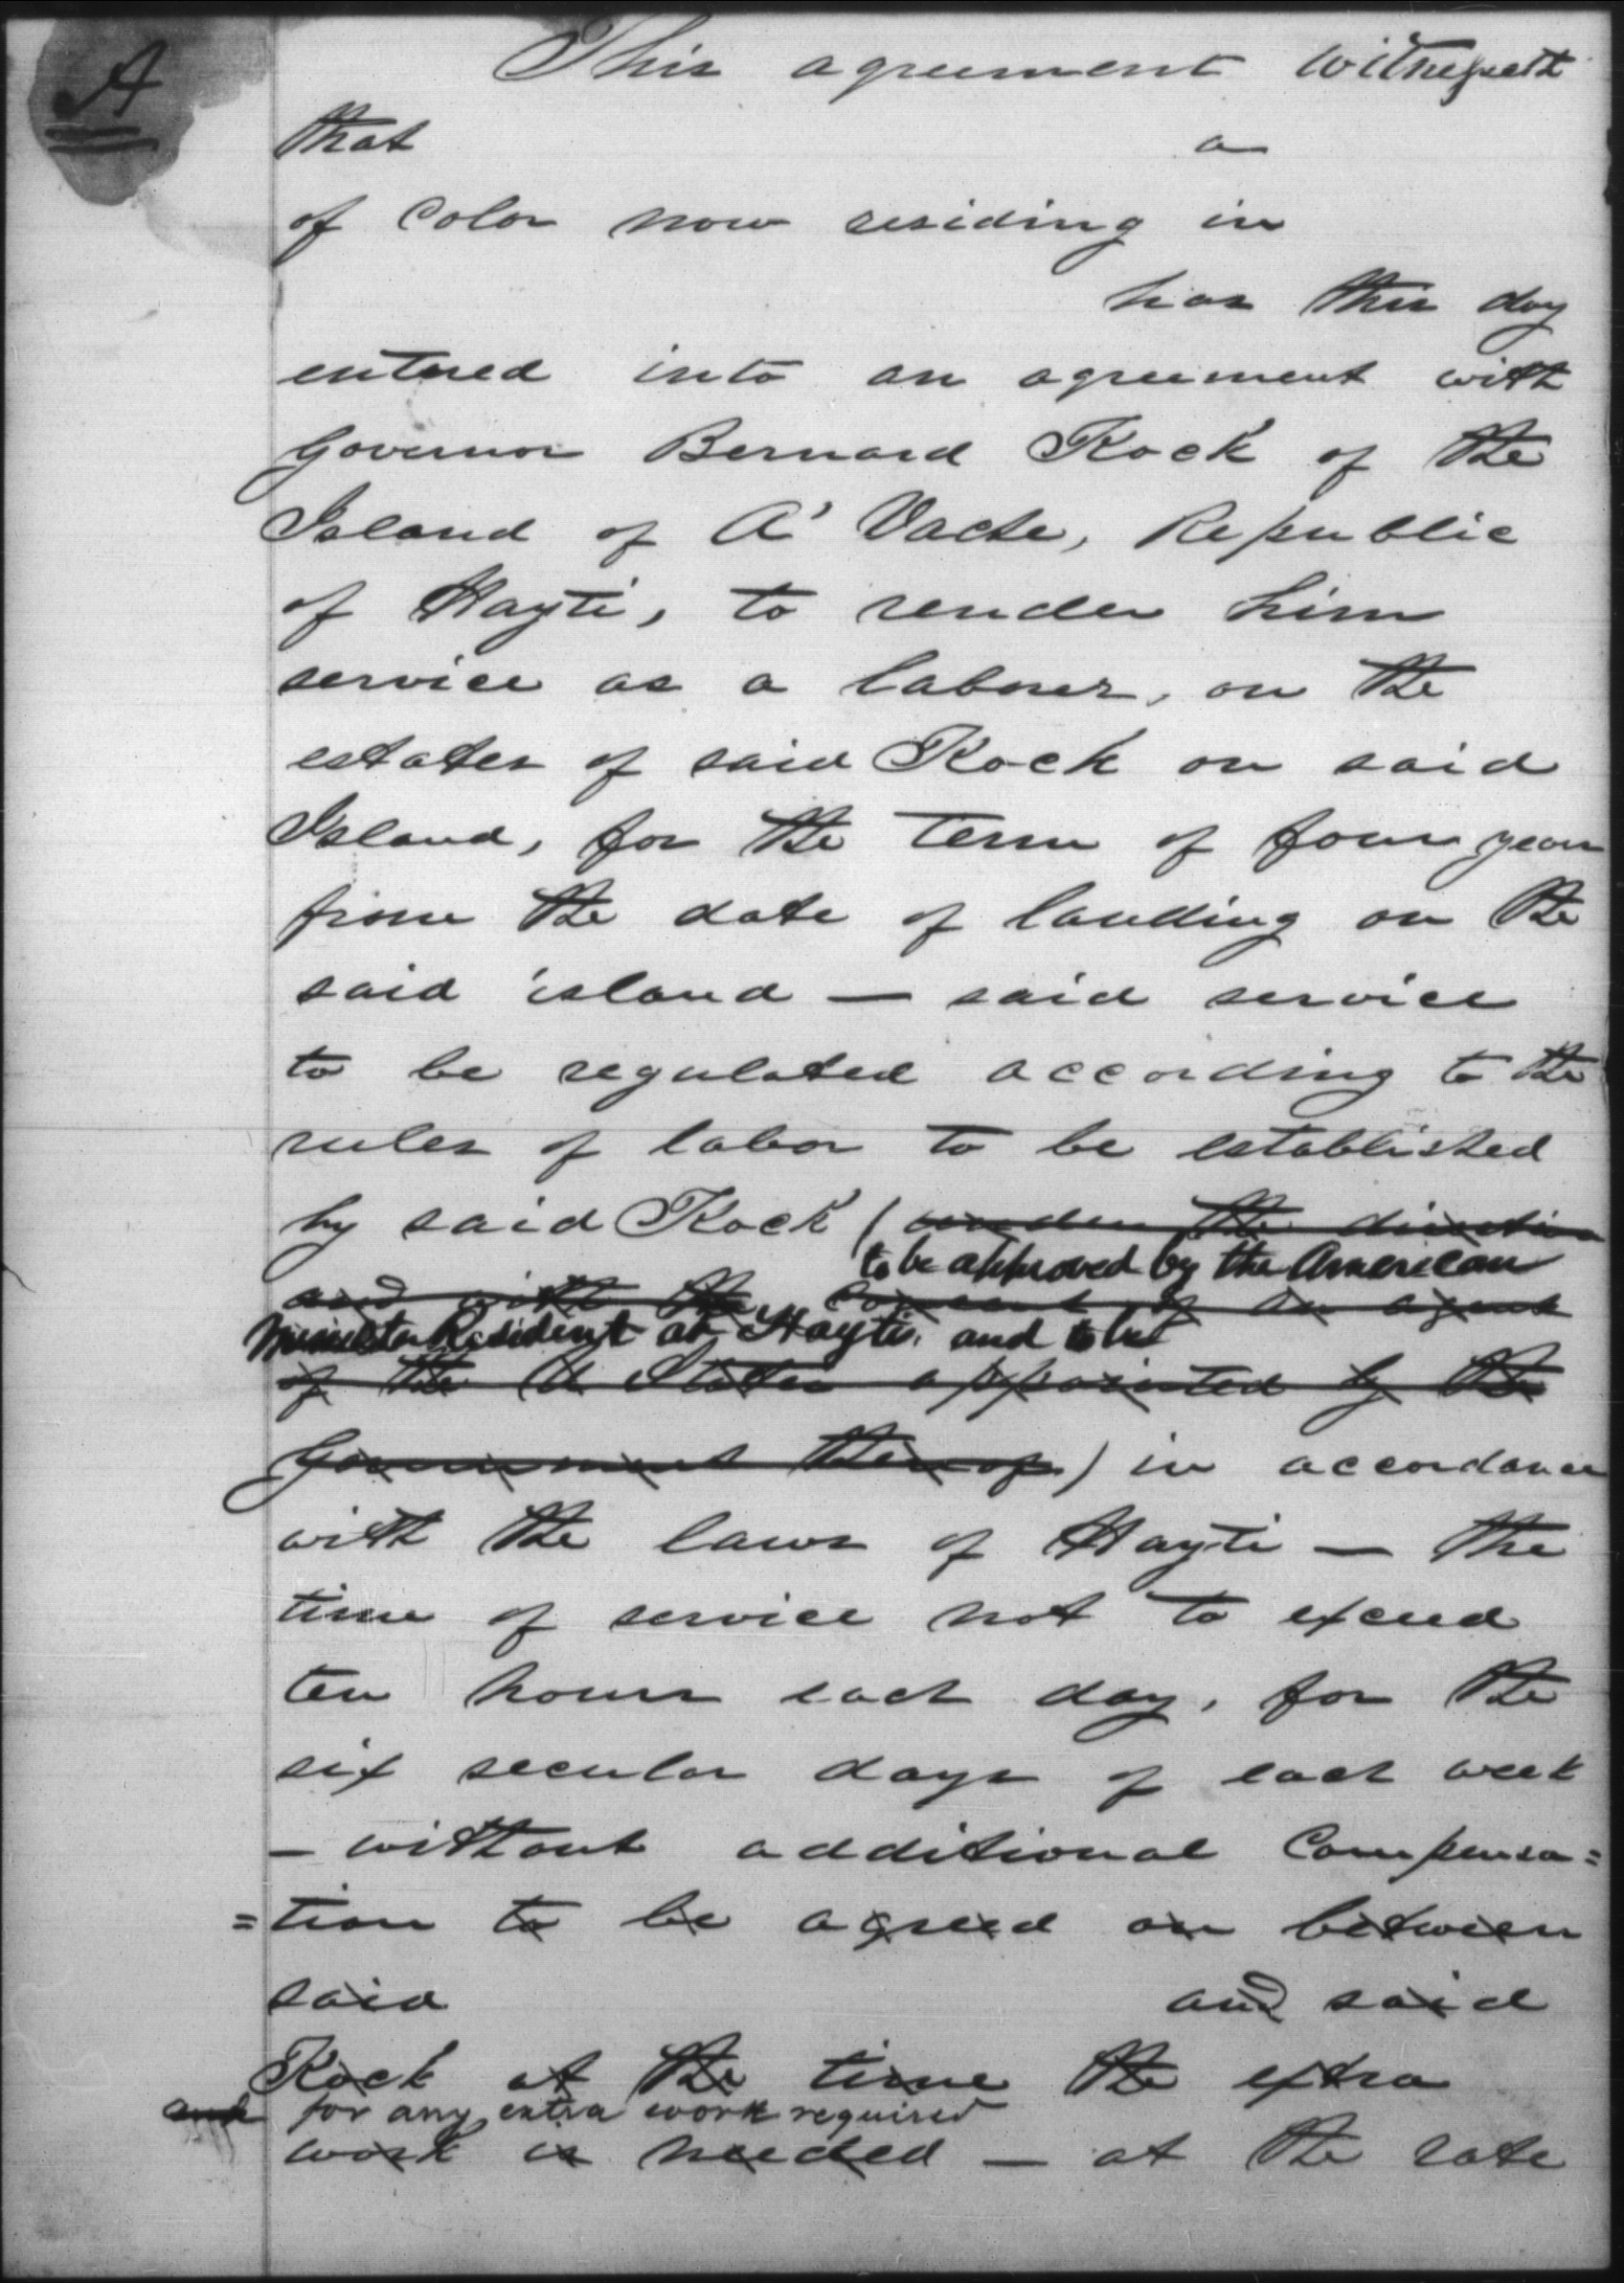 A
This agreement witnesseth
that a
of color now residing in
has this day
entered into an agreement with
Governor Bernard Kock of the
Island of A' Vache, Republic
of Hayti, to render him
service as a laborer, on the
estates of said Kock on said
Island, for the term of four years
from the date of landing on the
said island — said service
to be regulated according to the
rules of labor to be established
by said Kock ( under the direction
to be approved by the American
and with the consent of an agent
Minister Resident at Hayti, and to be
of the U States appointed by the
Government thereof ) in accordance
with the laws of Hayti — The
time of service not to exceed
ten hours each day, for the
six secular days of each week
— without additional Compensa=
=tion to be agreed on between
said and said
Kock at the time the extra
and for any extra work required
work is needed — at the rate